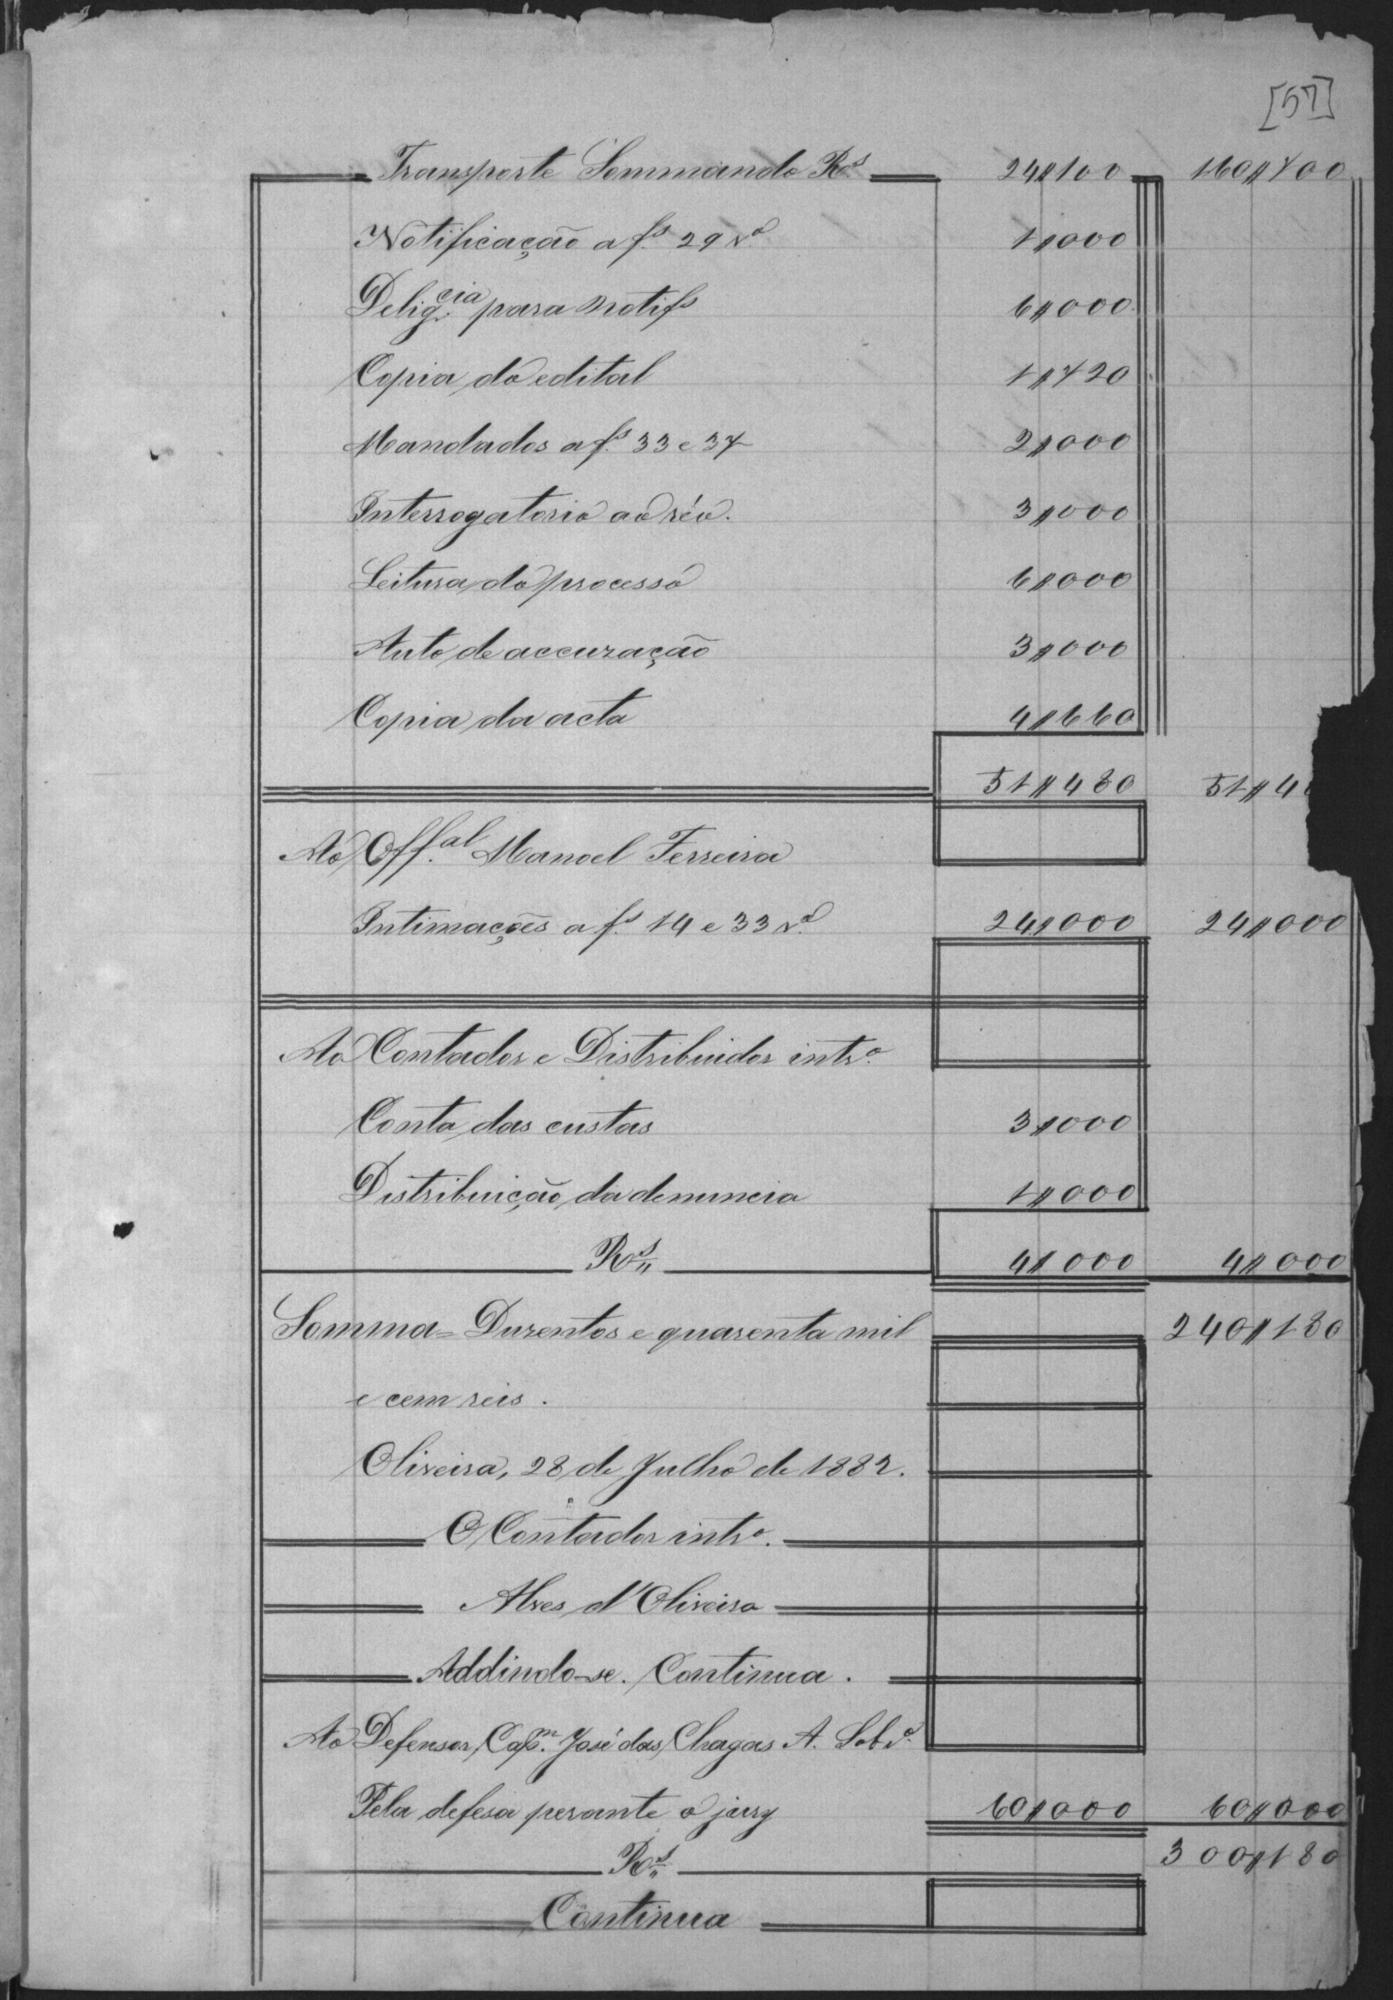 [57]
Transporte Sommando R.s 24$100 160$700
Notificação a f.s 29 v.o 1$000
Delig.cia para notif.s 6$000
Copia do edital 1$720
Mandados a f.s 33 e 37 2$000
Interrogatorio ao réo. 3$000
Leitura do processo 6$000
Auto de accuzação 3$000
Copia da acta 4$660
51$480 51$4
Ao Off.al Manoel Ferreira
Intimações a f.s 14 e 33 v.o 24$000 24$000
Ao Contador e Distribuidor intr.o
Conta das custas 3$000
Distribuição da denuncia 1$000
R.s 4$000 4$000
Somma = Duzentos e quarenta mil 240$180
e cem reis.
Oliveira, 28 de Julho de 1882.
O Contador intr.o
Alves d'Oliveira
Addindo-se. Continua.
Ao Defensor, Cap.m José das Chagas A. Sobr.o
Pela defesa perante o jury 60$000 60$000
R.s 300$180
Continua